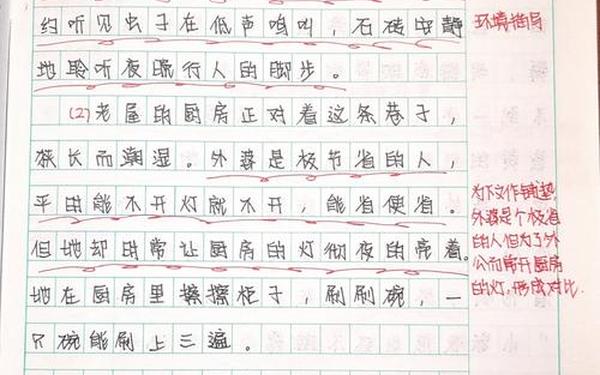 约听见虫子在低声鸣叫，石砖安静
地聆听夜晚行人的脚步。
(2)老屋的厨房正对着这条巷子，
狭长而潮湿。外婆是极节省的人，
平时能不开灯就不开，能省便省。
但她却时常让厨房的灯彻夜的亮着。
她在厨房里擦擦柜子，刷刷碗，一
只碗能刷上三遍。
环境描写
为下文作铺垫，
外婆是个极省
的人但为了外
公而常开厨房
的灯，形成对比.